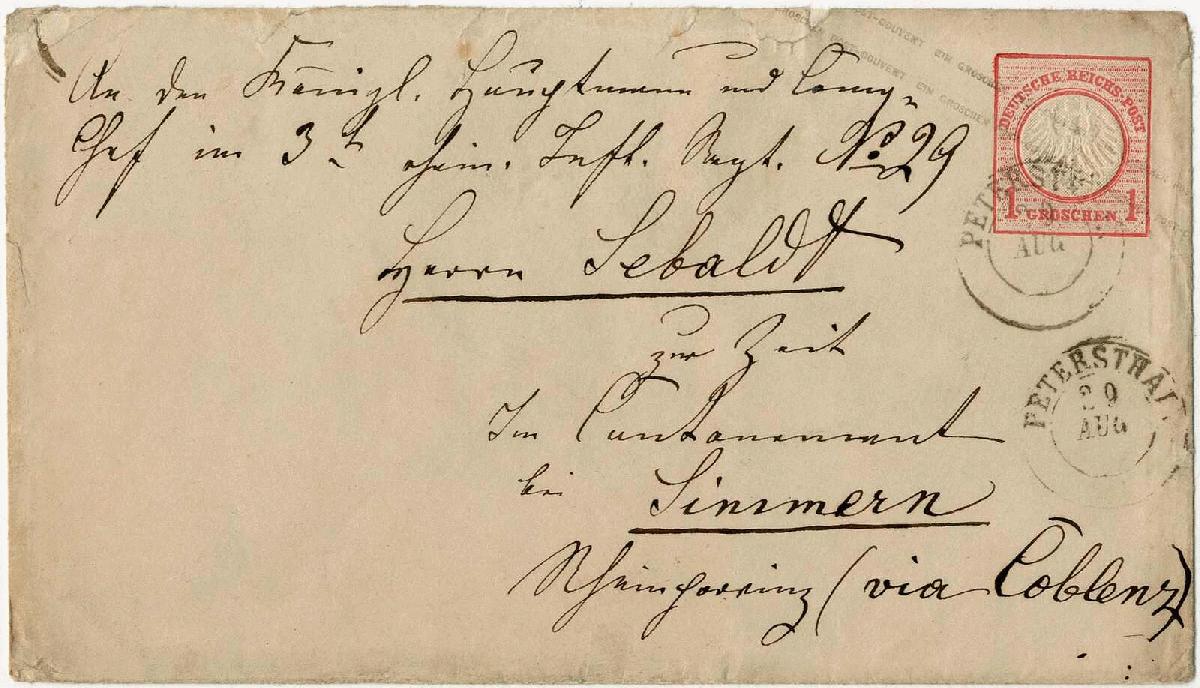 POST-COUVERT EIN GROSCHEN
POST-COUVERT EIN GROSCHEN
DEUTSCHE REICHS-POST
1 GROSCHEN 1
An den Königl. Hauptmann und Comp.
Chef im 3t rhein. Inft. Regt. No. 29
Herrn Sebaldt
zur Zeit
Im Cantonnement
bei Simmern
Rheinprovinz (via Coblenz)
29
AUG
PETERSTHAL
29
AUG